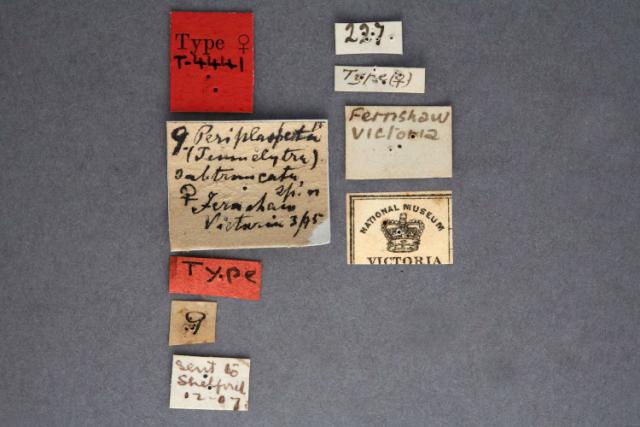 Type ♀
T-4441
♀ Periplaneta
(Temnelytra)
subtruncata
♀ Fernshaw
Victoria 3/95
Type
♀
Sent to
Shelford
02-07
227.
Type (♀)
Fernshaw
Victoria
NATIONAL MUSEUM
VICTORIA